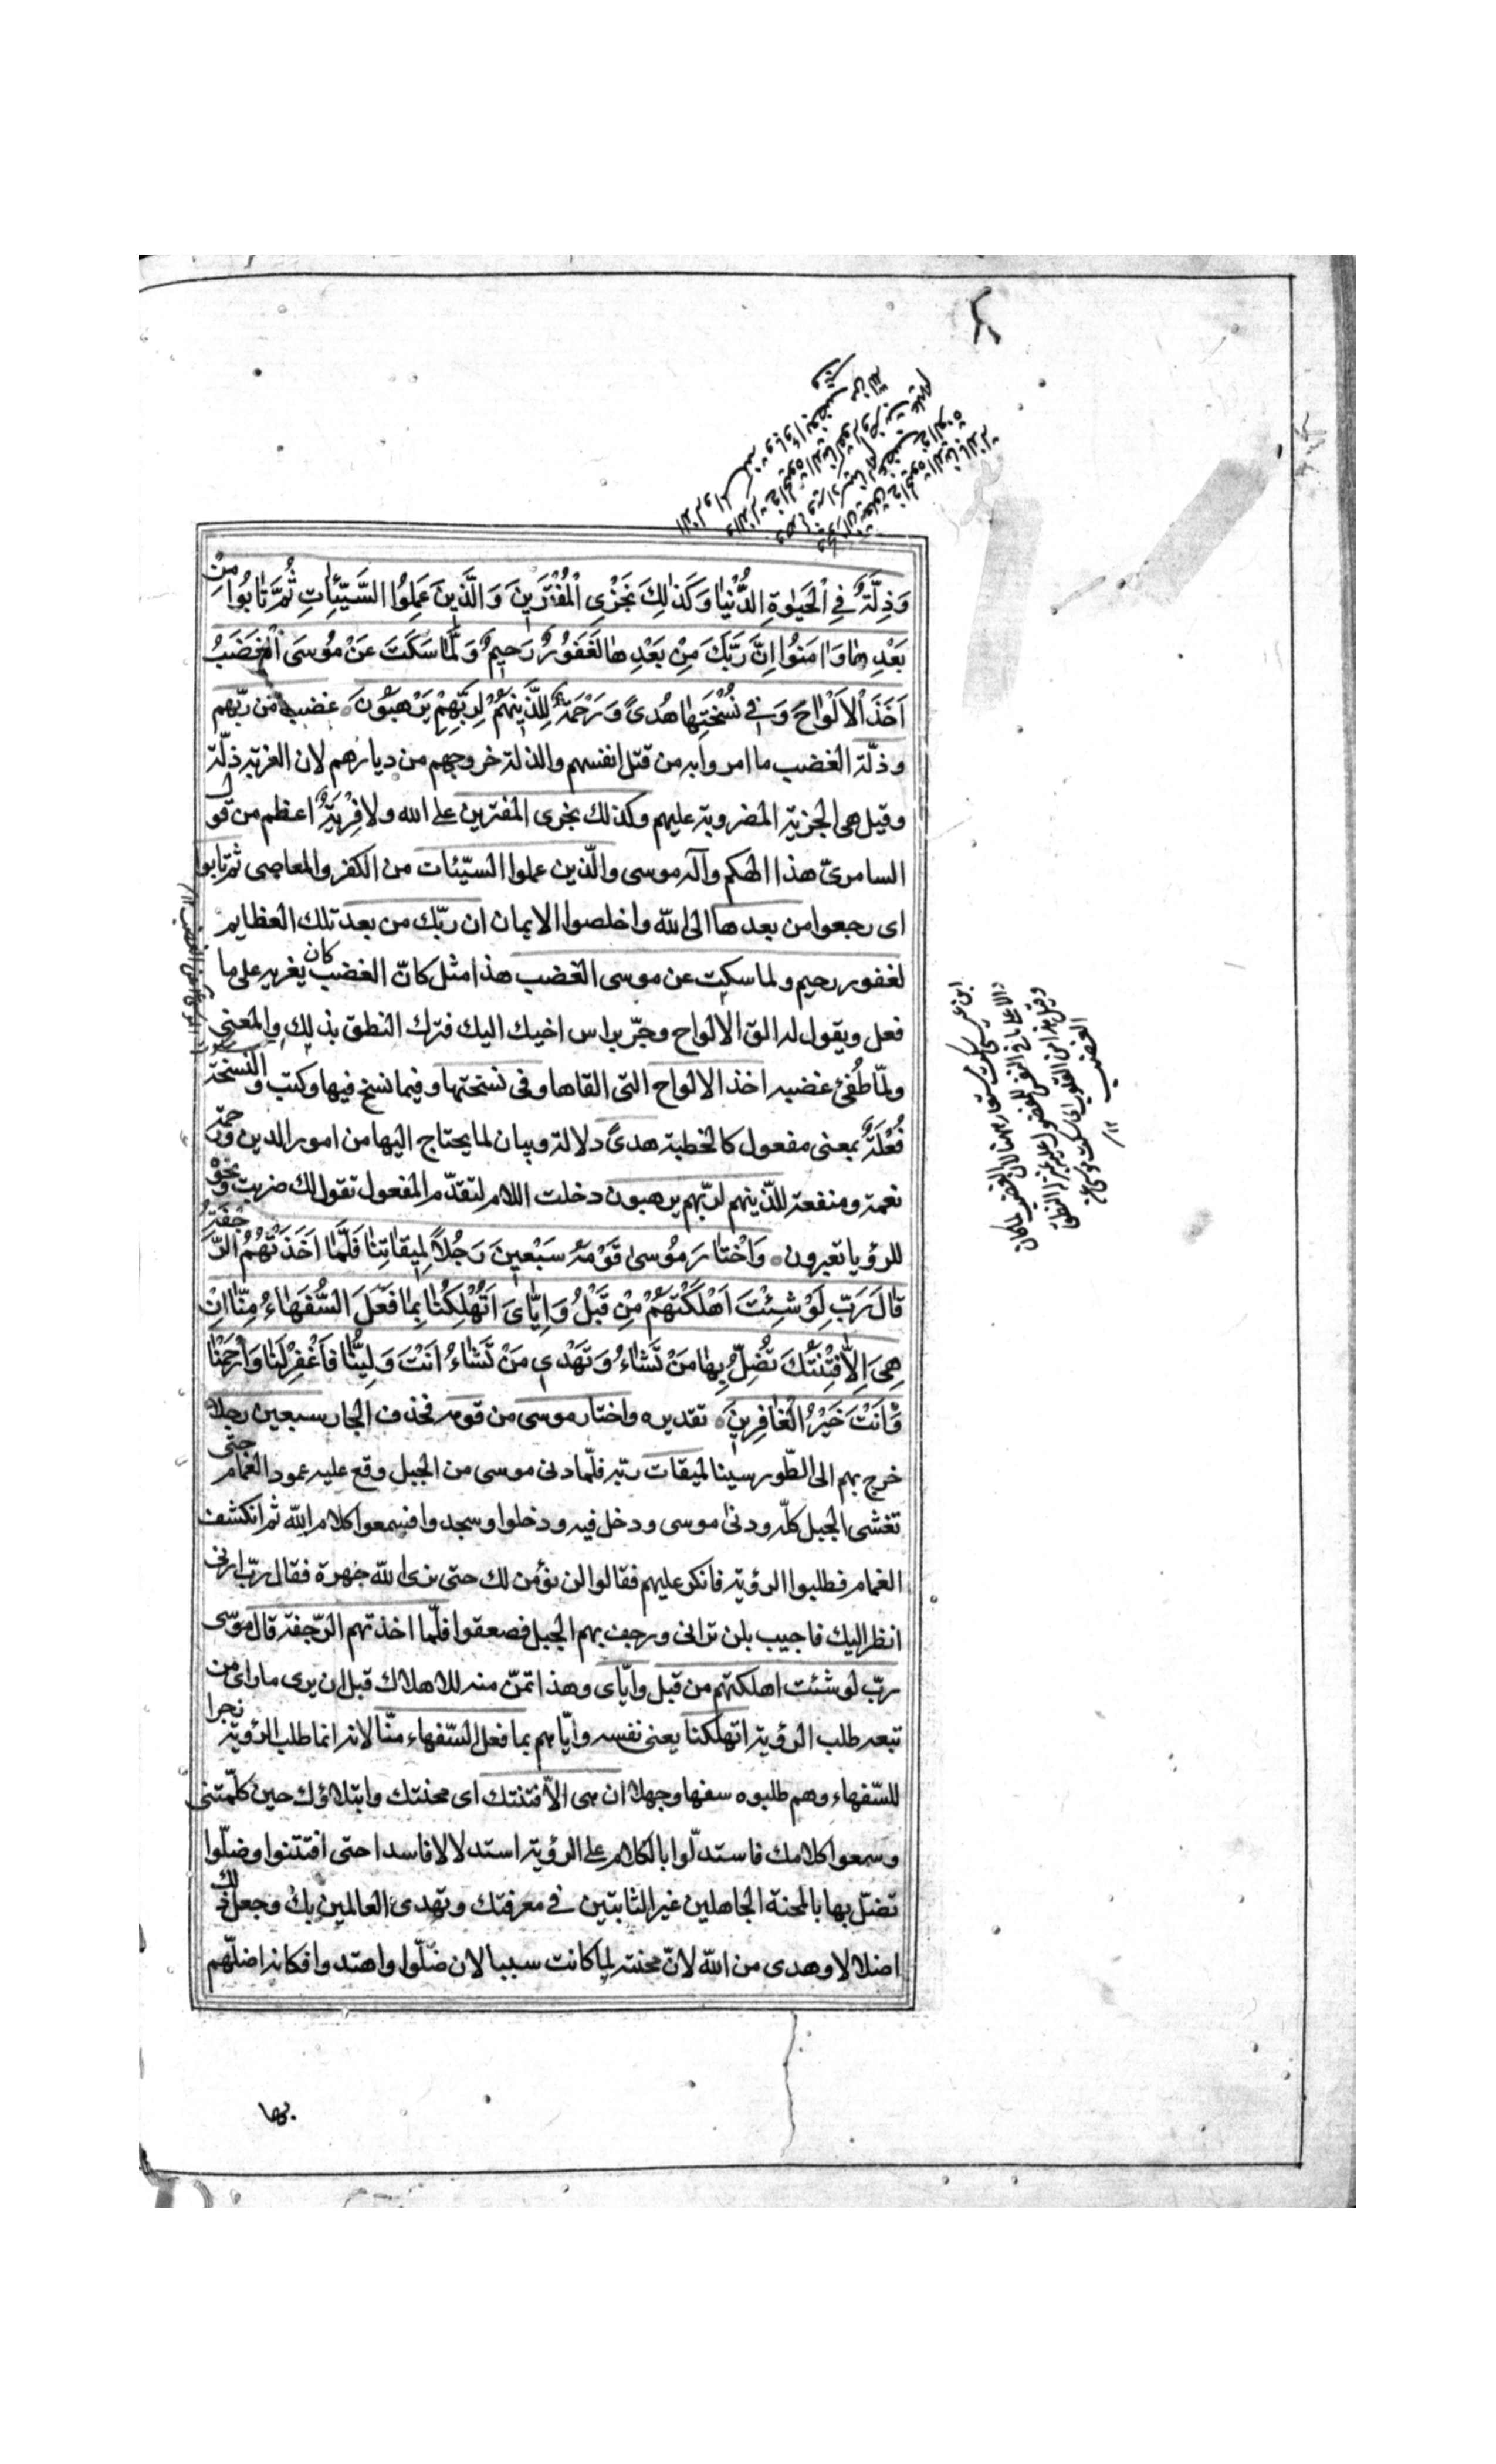 وَذِلَّةٌ فِي الْحَيٰوةِ الدُّنْيٰا وَكَذٰلِكَ نَجْزِي الْمُفْتَرِينَ وَالَّذِينَ عَمِلُوا السَّيِّئٰاتِ ثُمَّ تٰابُوا مِنْ
بَعْدِهٰا وَاٰمَنُوا اِنَّ رَبَّكَ مِنْ بَعْدِهٰا لَغَفُورٌ رَحِيمٌ وَلَمّٰا سَكَتَ عَنْ مُوسَى الْغَضَبُ
اَخَذَ الْاَلْوٰاحَ وَفِي نُسْخَتِهٰا هُدىً وَرَحْمَةٌ لِلَّذِينَهُمْ لِرَبِّهِمْ يَرْهَبُونَ غضب من ربّهم
وذلّة الغضب ما امروا به من قتل انفسهم والذلة خروجهم من ديارهم لان الغربة ذلّة
وقيل هى الجزية المضروبة عليهم وكذلك نجزى المفترين على الله ولا فِرْيَةٌ اعظم من قول
السامرىّ هذا الهكم وآله موسى والّذين عملوا السيّئات من الكفر والمعاصى ثم تابوا
اى رجعوا من بعدها الى الله واخلصوا الايمان ان ربّك من بعد تلك العظايم
لغفور رحيم ولما سكت عن موسى الغضب هذا مثل كانّ الغضب كان يغريه على ما
فعل ويقول له الق الالواح وجرّ براس اخيك اليك فترك النطق بذلك والمعنى
ولمّا طُفئ غضبه اخذ الالواح التى القاها وفى نسختها وفيما نسخ فيها وكتب والنسخة
فُعْلَةٌ بمعنى مفعول كالخطبة هدىً دلالة وبيان لما يحتاج اليها من امور الدين ورحمة
نعمة ومنفعة للّذينهم لربّهم يرهبون دخلت اللام لتقدّم المفعول تقول لك ضربت ونحوه
للرؤيا تعبرون وَاخْتٰارَ مُوسىٰ قَوْمَهُ سَبْعِينَ رَجُلاً لِمِيقٰاتِنٰا فَلَمّٰا اَخَذَتْهُمُ الرَّجْفَةُ
قٰالَ رَبِّ لَوْ شِئْتَ اَهْلَكْتَهُمْ مِنْ قَبْلُ وَاِيّٰاىَ اَتُهْلِكُنٰا بِمٰا فَعَلَ السُّفَهٰاءُ مِنّٰا اِنْ
هِىَ اِلّٰا فِتْنَتُكَ تُضِلُّ بِهٰا مَنْ تَشٰاءُ وَتَهْدِي مَنْ تَشٰاءُ اَنْتَ وَلِيُّنٰا فَاغْفِرْ لَنٰا وَارْحَمْنٰا
وَاَنْتَ خَيْرُ الْغٰافِرِينَ تقديره واختار موسى من قومه فحذف الجار سبعين رجلا
خرج بهم الى الطّور سينا لميقات ربّه فلمّا دنى موسى من الجبل وقع عليه عمود الغمام حتى
تغشى الجبل كلّه ودنىٰ موسى ودخل فيه ودخلوا وسجدوا فسمعوا كلام الله ثم انكشف
الغمام فطلبوا الرؤية فانكر عليهم فقالوا لن نؤمن لك حتى نرى الله جهرة فقال ربّ ارنى
انظر اليك فاجيب بلن ترانى ورجف بهم الجبل فصعقوا فلمّا اخذتهم الرّجفة قال موسى
ربّ لو شئت اهلكتهم من قبل وايّاى وهذا تمنّ منه للاهلاك قبل ان يرى ما راى من
تبعه طلب الرؤية اتهلكنا يعنى نفسه وايّاهم بما فعل السّفهاء منّا لانه انما طلب الرؤية زجرا
للسّفهاء وهم طلبوه سفها وجهلا ان هى الاّ فتنتك اى محنتك وابتلاؤك حين كلّمتنى
وسمعوا كلامك فاستدلّوا بالكلام على الرؤية استدلالا فاسدا حتى افتتنوا وضلّوا
تضلّ بها بالمحنة الجاهلين غير الثابتين فى معرفتك وتهدى العالمين بك وجعل ذلك
اضلالا وهدى من الله لانّ محنته لما كانت سببا لان ضلّوا واهتدوا فكانه اضلّهم
بها